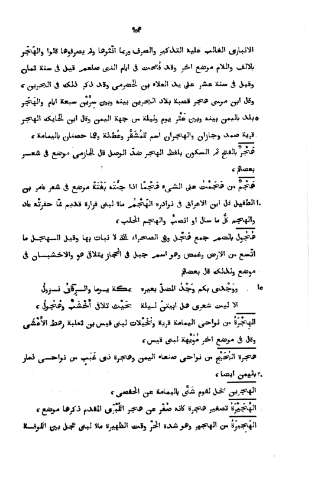 ٩٥٤
الانبارى الغالب عليه التذكير والصرف وربما انثوها ولم يصرفوها قالوا والهجر
بالالف واللام موضع اخر وقد فتحت فى ايام النبى صلعم قيل فى سنة ثمان
وقيل فى سنة عشر على يد العلاء بن الحضرمى وقد ذكر ذلك فى البحرين
وقال ابن موسى هجر قصبة بلاد البحرين بينه وبين سرين سبعة ايام والهجر
بلد باليمن بينه وبين عثر يوم وليلة من جهة اليمن وقال ابن الحايك الهجر
قرية صمد وجازان والهجران اسم للمشقر وعطالة وهما حصنان باليمامة
هجر بالفتح ثم السكون بلفظ الهجر ضد الوصل قال الحازمى موضع فى شعر
بعضهم
هجم من هجمت على الشىء هجما اذا جئته بغتة موضع فى شعر عامر بن
١٠ الطفيل قال ابن الاعرابى فى نوادره الهجم ماء لبنى فزارة قديم مما حفرته عاد
والهجم كل ما سال او انصب والهجم الحلب
هجول بالضم جمع هجل وهى الصحراء التى لا نبات بها وقيل الهجل ما
اتسع من الارض وغمض وهو اسم جبل فى الحجاز يتلاق هو والاخشبان فى
موضع ولذلك قال بعضهم
١٥ ووجدى بكم وجد المضل بعيره بمكة يوما والرفاق نزول
الا ليت شعرى هل ابيتن ليلة بحيث تلاق اخشب وهجول
الهجيرة من نواحى اليمامة قرية ونخيلات لبنى قيس بن ثعلبة رهط الأعشى
وقال فى موضع اخر مويهة لبنى قيس
هجرة من نواحى صنعاء اليمن وهجرة ذى غبب من نواحى ذمار
٢٠ باليمن ايضا
الهجيرين نخل لقوم شتى باليمامة عن الحفصى
الهجيرة تصغير هجرة كانه صغر عن هجر القرى المقدم ذكرها موضع
الهجيرة من الهجير وهو شدة الحر وقت الظهيرة ماء لبنى عجل بين الكوفة